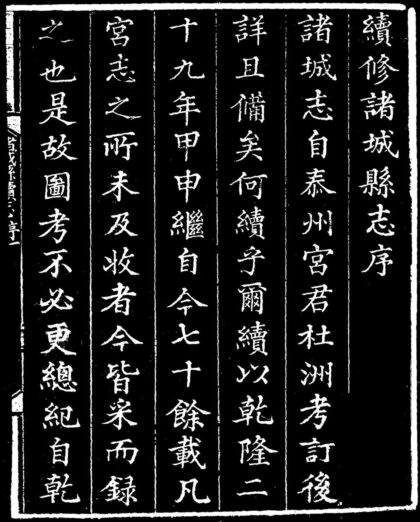 續修諸城縣志序
諸城志自泰州宮君杜洲考訂後
詳且備矣何續乎爾續以乾隆二
十九年甲申繼自今七十餘載凡
宮志之所未及收者今皆采而録
之也是故圖考不必更總紀自乾
諸城縣續志序一